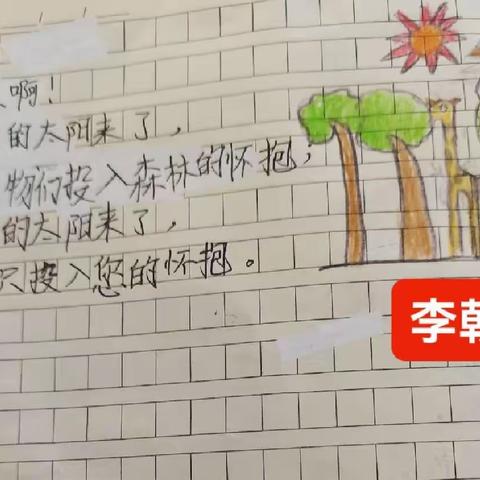 啊！
的太阳来了，
物们投入森林的怀抱，
的太阳来了，
只投入您的怀抱。
李韩